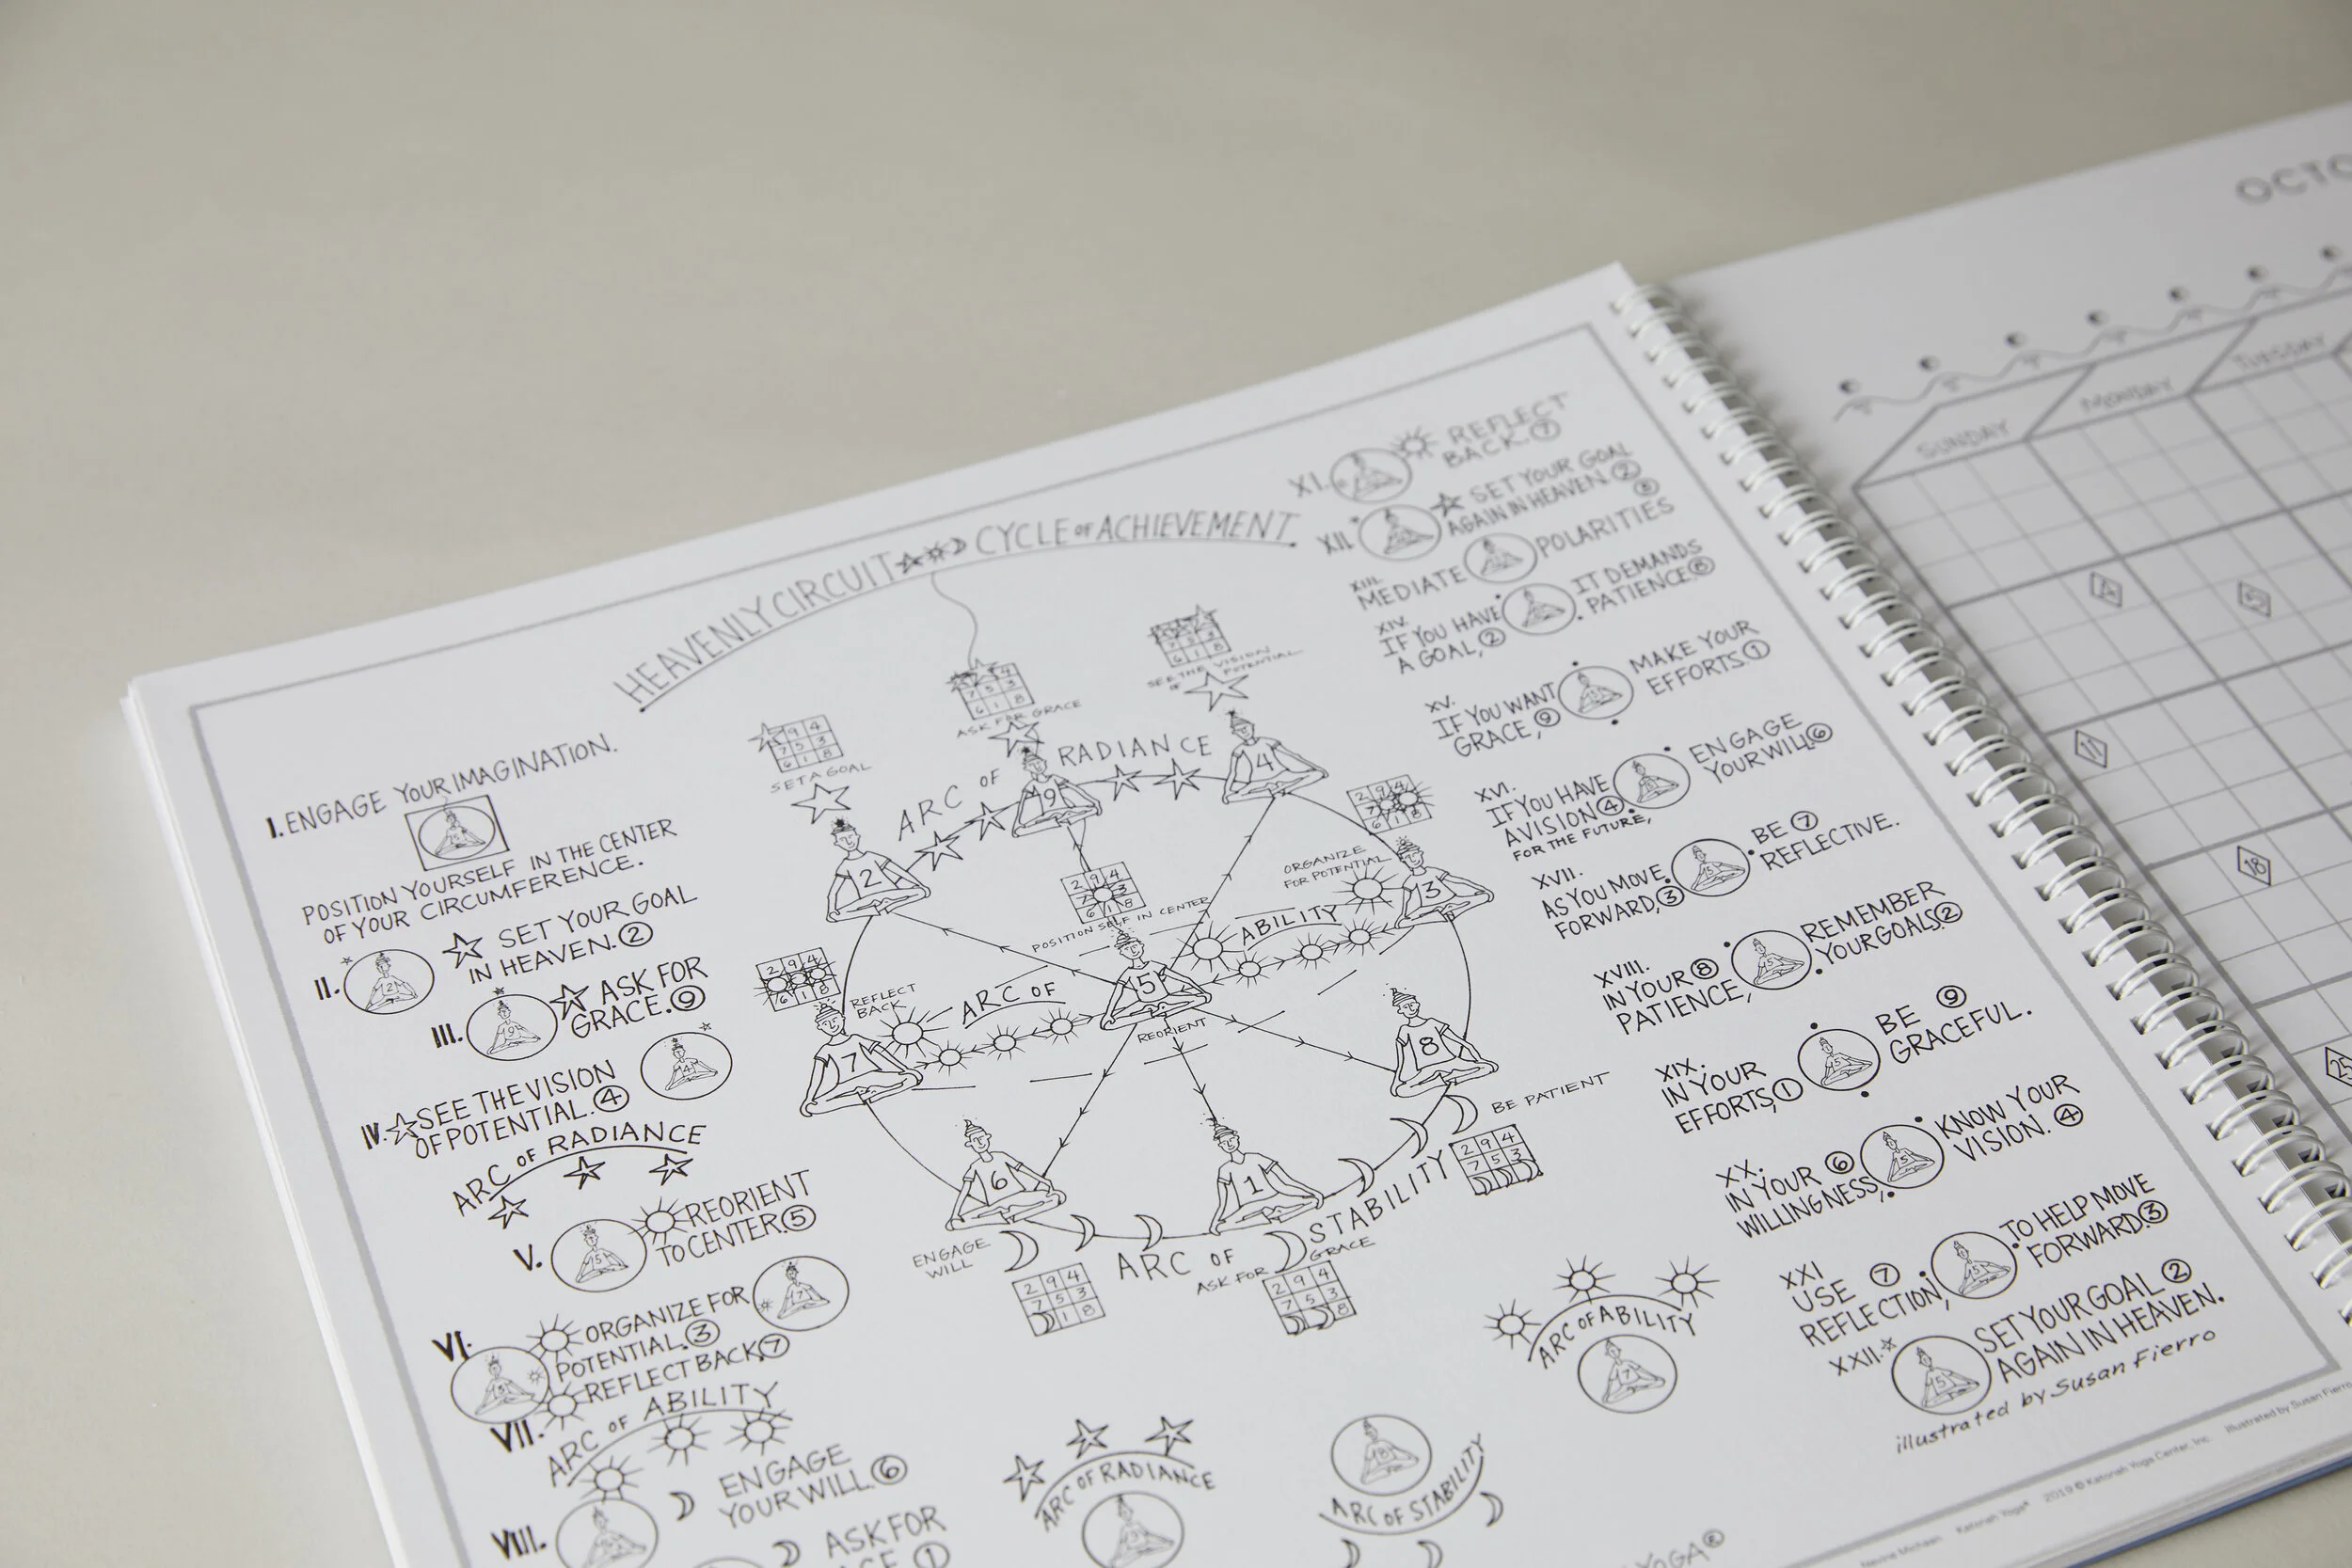 HEAVENLY CIRCUIT CYCLE OF ACHIEVEMENT
I. ENGAGE YOUR IMAGINATION.
POSITION YOURSELF IN THE CENTER
OF YOUR CIRCUMFERENCE.
II. SET YOUR GOAL
IN HEAVEN. 2
III. ASK FOR
GRACE. 9
IV. SEE THE VISION
OF POTENTIAL. 4
ARC OF RADIANCE
V. REORIENT
TO CENTER. 5
VI. ORGANIZE FOR
POTENTIAL. 3
VII. REFLECT BACK. 7
ARC OF ABILITY
VIII. ENGAGE
YOUR WILL. 6
ASK FOR
1
SET A GOAL
2 9 4
7 5 3
6 1 8
ASK FOR GRACE
SEE THE VISION
OF POTENTIAL
ARC OF RADIANCE
2
9
4
2 9 4
POSITION SELF IN CENTER
ORGANIZE
FOR POTENTIAL
3
2 9 4
6 1 8
REFLECT
BACK
7
ARC OF ABILITY
5
REORIENT
8
BE PATIENT
2 9 4
7 5 3
6
1
ENGAGE
WILL
2 9 4
7 5 3
1 8
ARC OF STABILITY
ASK FOR
GRACE
2 9 4
7 5 3
8
XI. REFLECT
BACK. 7
XII. SET YOUR GOAL
AGAIN IN HEAVEN 2
XIII.
MEDIATE POLARITIES
XIV.
IF YOU HAVE
A GOAL, 2
IT DEMANDS
PATIENCE 8
XV.
IF YOU WANT
GRACE, 9
MAKE YOUR
EFFORTS. 1
XVI.
IF YOU HAVE
A VISION 4
FOR THE FUTURE,
ENGAGE
YOUR WILL 6
XVII.
AS YOU MOVE
FORWARD, 3
BE 7
REFLECTIVE.
XVIII.
IN YOUR 8
PATIENCE,
REMEMBER
YOUR GOALS. 2
XIX.
IN YOUR
EFFORTS, 1
BE 9
GRACEFUL.
XX.
IN YOUR 6
WILLINGNESS,
KNOW YOUR
VISION. 4
XXI
USE 7
REFLECTION,
TO HELP MOVE
FORWARD. 3
XXII.
SET YOUR GOAL 2
AGAIN IN HEAVEN.
illustrated by Susan Fierro
ARC OF ABILITY
7
ARC OF RADIANCE
ARC OF STABILITY
8
YOGA®
Katonah Yoga® 2019 © Katonah Yoga Center, Inc. Illustrated by Susan Fierro
SUNDAY
MONDAY
TUESDAY
11
18
25